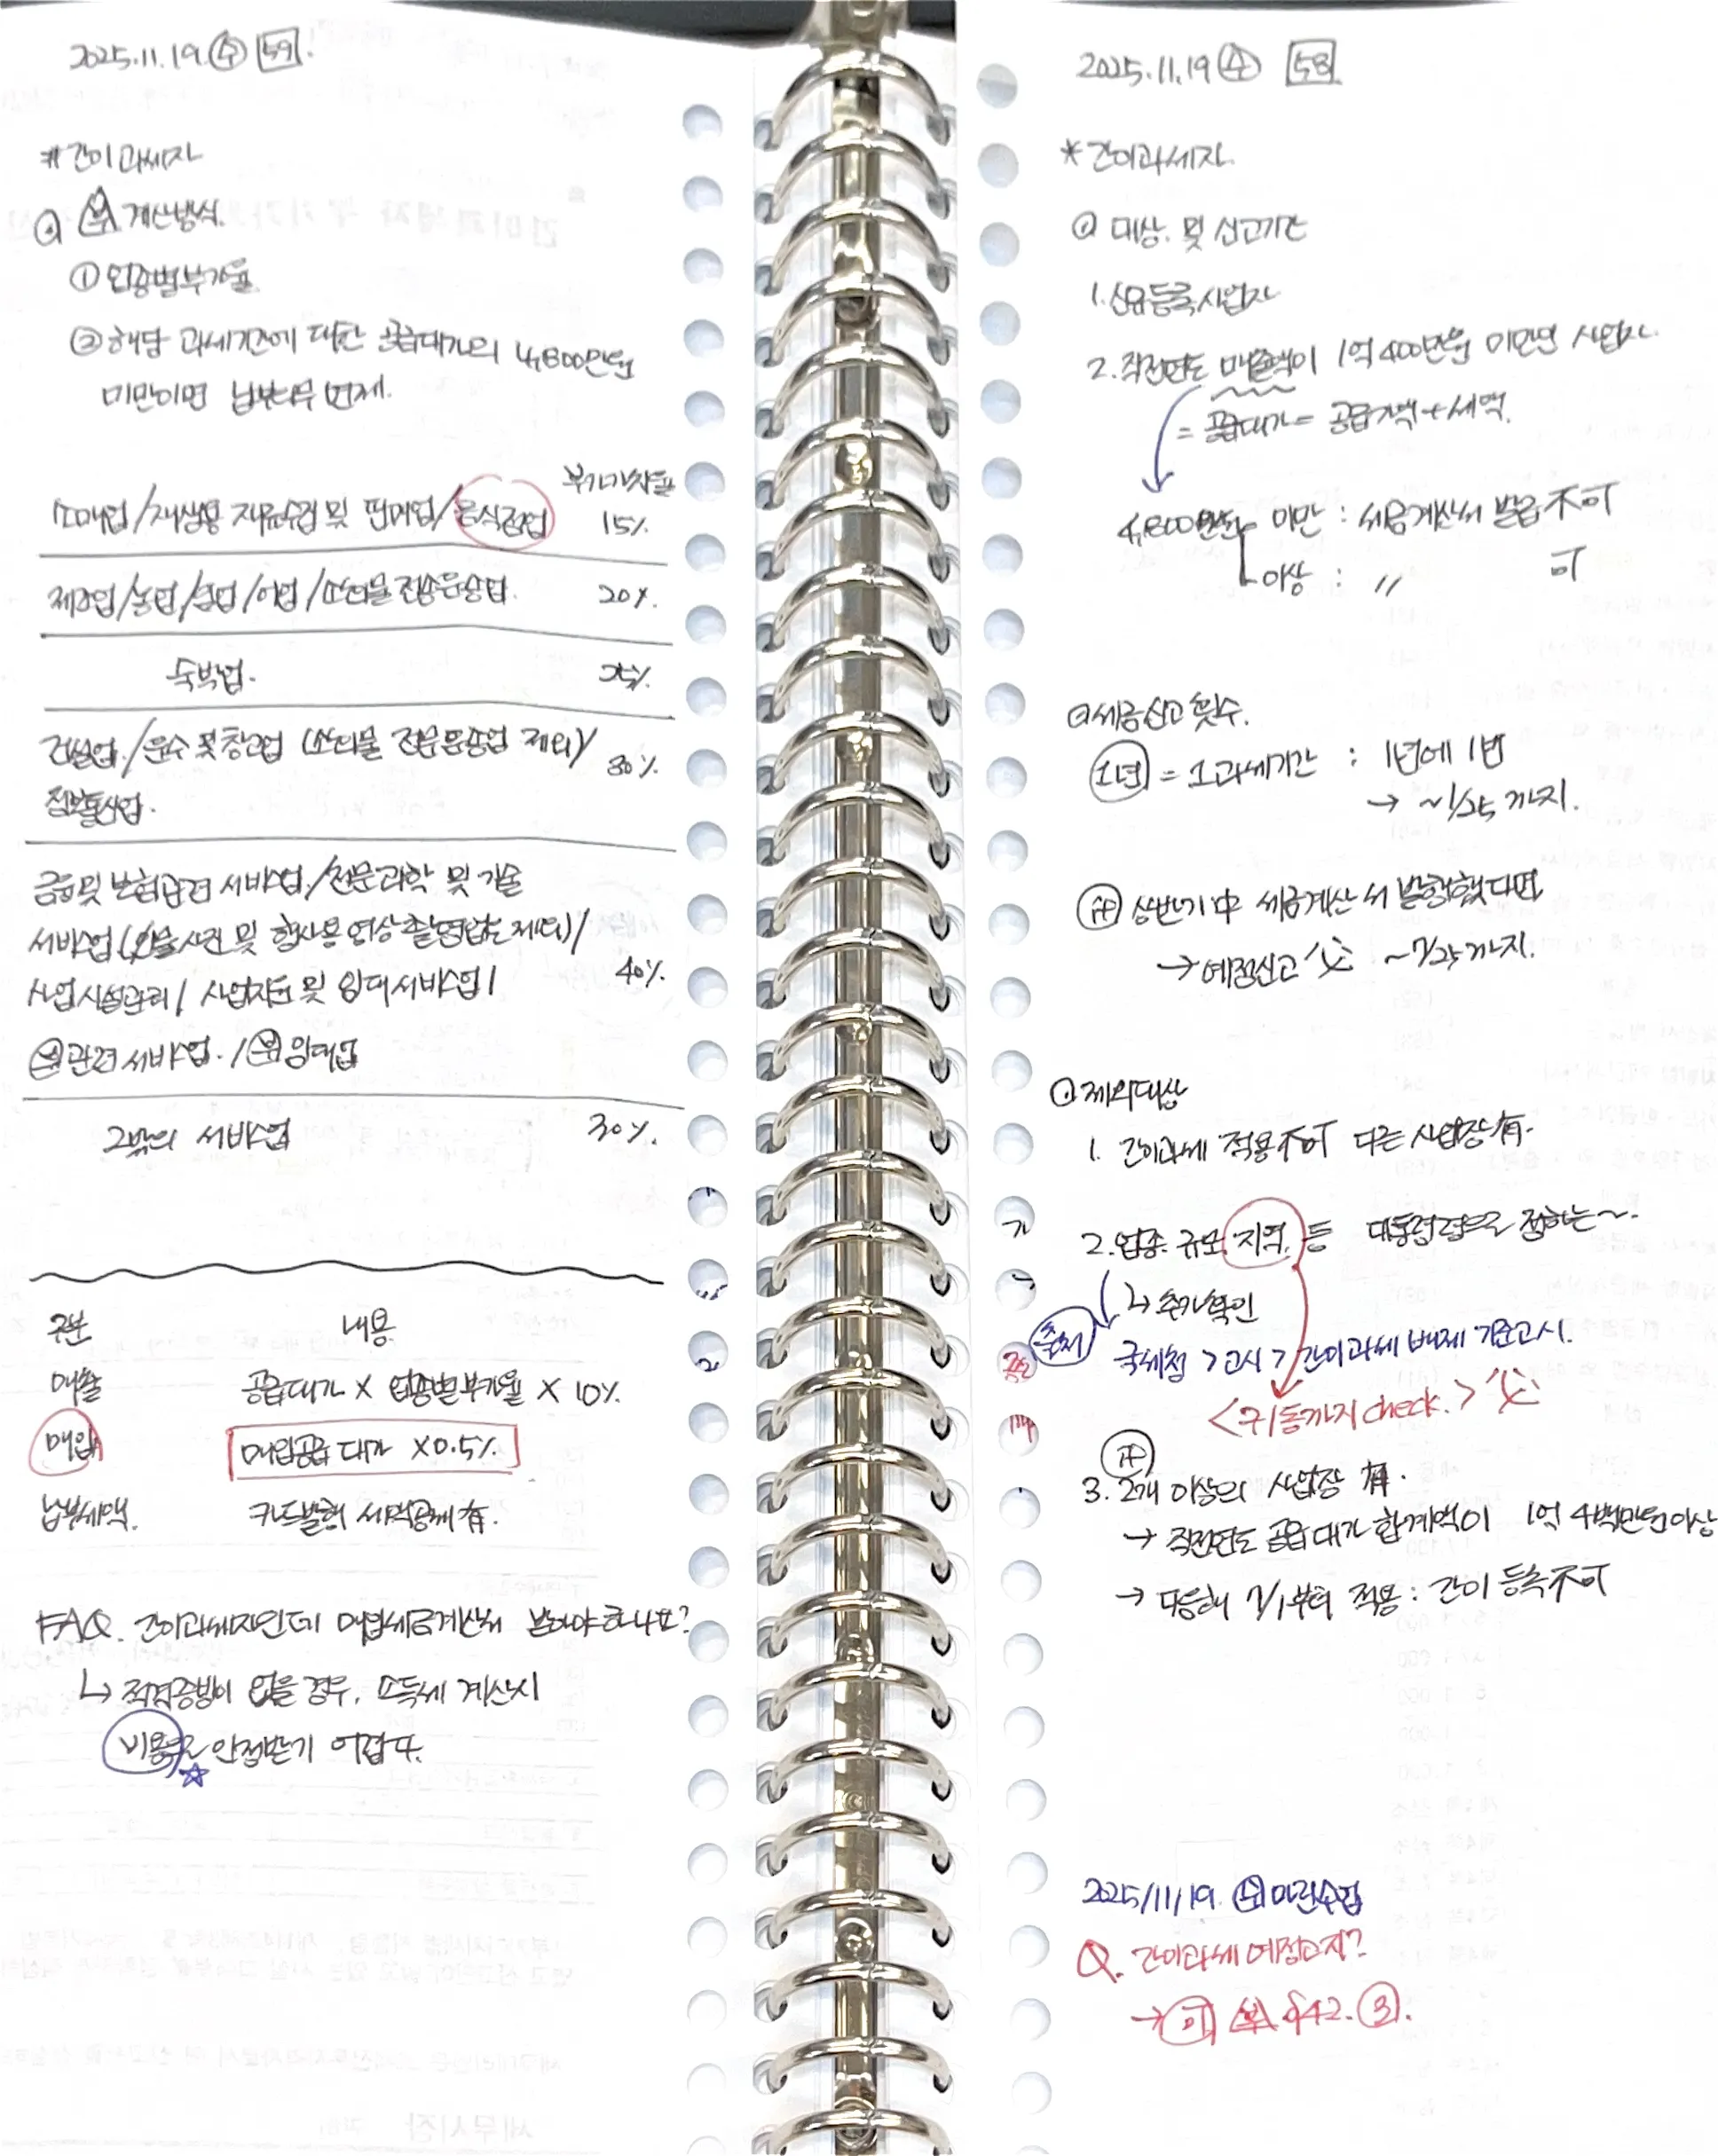 2025.11.19. 수 59.
# 간이과세자
@ 부 계산방식.
① 업종별부가율
② 해당 과세기간에 대한 공급대가의 4,800만원
미만이면 납부의무 면제.
부가가치율
소매업/재생용 재료수집 및 판매업/음식점업 15%
제조업/농업/임업/어업/소화물 전문운송업. 20%.
숙박업. 25%.
건설업./운수 및 창고업 (소화물 전문운송업 제외)/ 30%.
정보통신업.
금융 및 보험관련 서비스업./전문과학 및 기술
서비스업(인물사진 및 행사용 영상촬영업은 제외)/
40%.
사업시설관리/ 사업지원 및 임대서비스업/
부 관련 서비스업. / 부 임대업
그밖의 서비스업 30%.
구분 내용
매출 공급대가 × 업종별부가율 × 10%.
매입 매입공급대가 ×0.5%
납부세액. 카드발행 세액공제 有.
FAQ. 간이과세자인데 매입세금계산서 받아야하나요?
↳ 적격증빙이 없을 경우, 소득세 계산시
비용으로 인정받기 어렵다.
2025.11.19 수 58
* 간이과세자.
@ 대상. 및 신고기간
1. 신규등록사업자
2. 직전년도 매출액이 1억400만원 미만인 사업자.
= 공급대가 = 공급가액 + 세액.
4,800만원 미만 : 세금계산서 발급 不可
이상 : 〃 可
@ 세금신고 횟수.
1년 = 1과세기간 : 1년에 1번
→ ~1/25 까지.
상반기 中 세금계산서 발행했다면
→ 예정신고 ~7/25까지.
@ 제외대상
1. 간이과세 적용不可 다른 사업장有.
2. 업종. 규모. 지역. 등 대통령령으로 정하는~.
↳ 추가확인
출처 국세청 > 고시 > 간이과세 배제 기준고시.
<구/동까지 check.>
3. 2개 이상의 사업장 有.
→ 직전년도 공급대가 합계액이 1억 4백만원이상
→ 다음해 7/1부터 적용 : 간이 등록不可
2025/11/19. 수 마린수집
Q. 간이과세 예정고지?
→ 可 부 §42. ③.